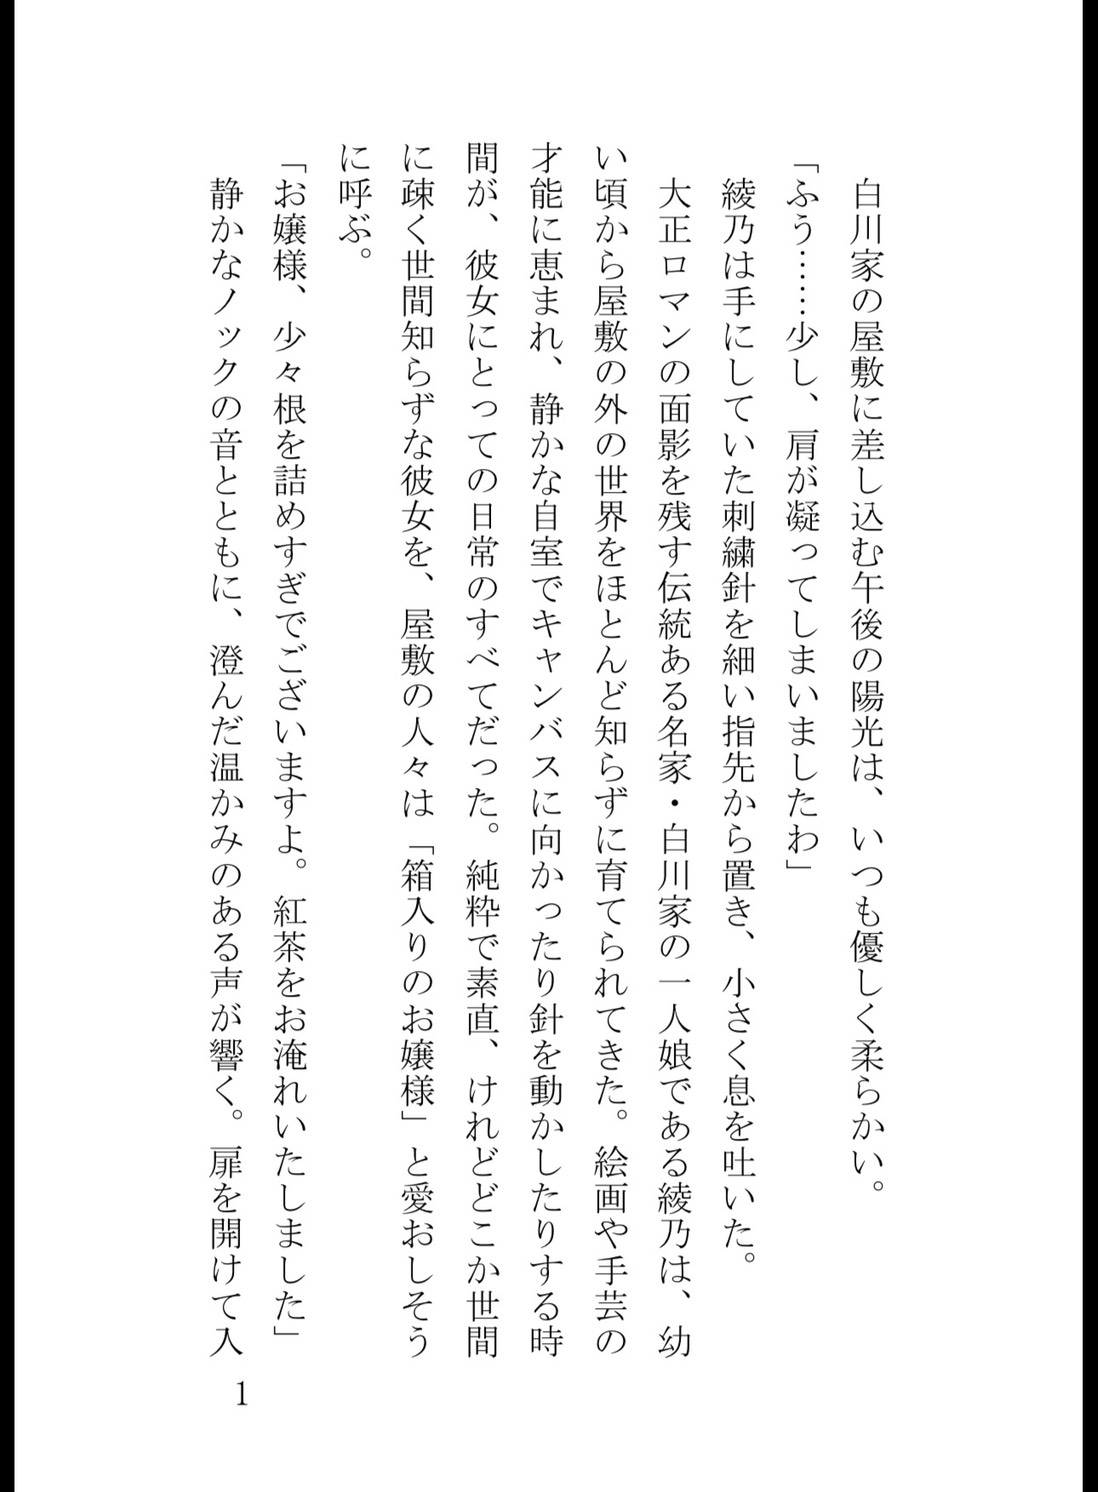 白川家の屋敷に差し込む午後の陽光は、いつも優しく柔らかい。
「ふう……少し、肩が凝ってしまいましたわ」
綾乃は手にしていた刺繍針を細い指先から置き、小さく息を吐いた。
大正ロマンの面影を残す伝統ある名家・白川家の一人娘である綾乃は、幼
い頃から屋敷の外の世界をほとんど知らずに育てられてきた。絵画や手芸の
才能に恵まれ、静かな自室でキャンバスに向かったり針を動かしたりする時
間が、彼女にとっての日常のすべてだった。純粋で素直、けれどどこか世間
に疎く世間知らずな彼女を、屋敷の人々は「箱入りのお嬢様」と愛おしそう
に呼ぶ。
「お嬢様、少々根を詰めすぎでございますよ。紅茶をお淹れいたしました」
静かなノックの音とともに、澄んだ温かみのある声が響く。扉を開けて入
1